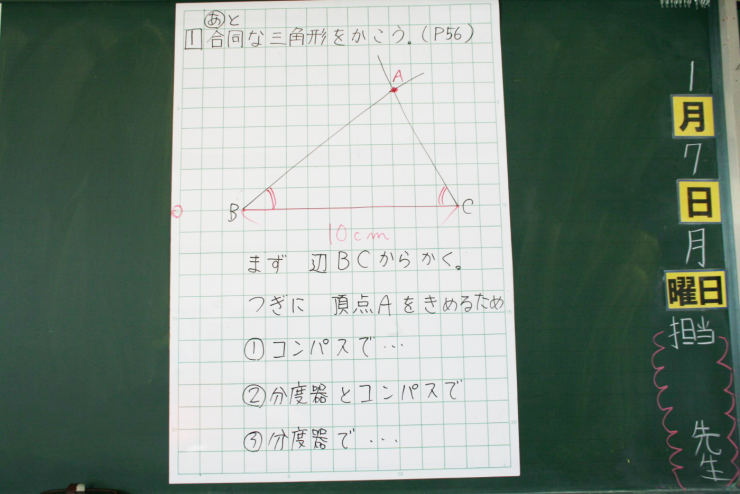 あと
1 合同な三角形をかこう。(P56)
A
B
C
10cm
まず 辺BCからかく。
つぎに 頂点Aをきめるため
①コンパスで…
②分度器とコンパスで
③分度器で…
1
月
7
日
月
曜日
担当
先生